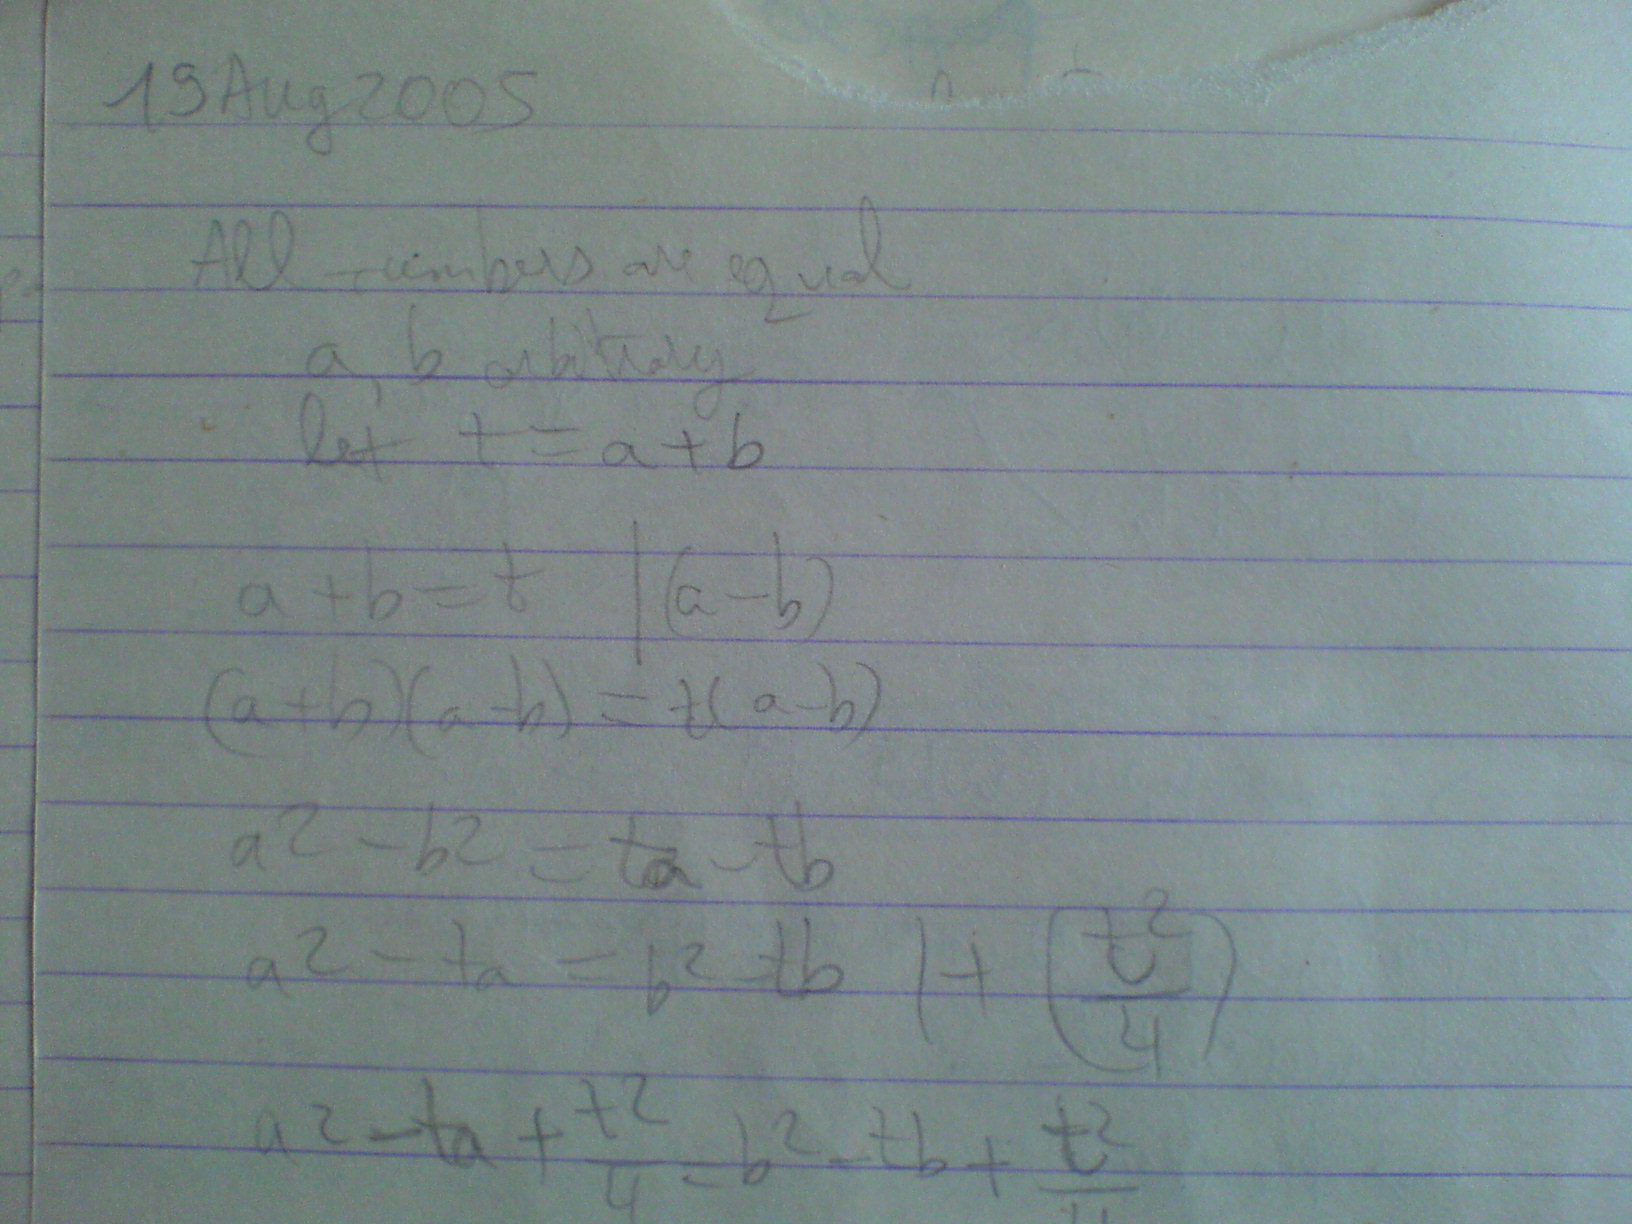 19Aug2005
All numbers are equal
a, b arbitrary
let t = a + b
a + b = t |(a - b)
(a + b)(a - b) = t(a - b)
a² - b² = ta - tb
a² - ta = b² - tb | + (t²/4)
a² - ta + t²/4 = b² - tb + t²/4